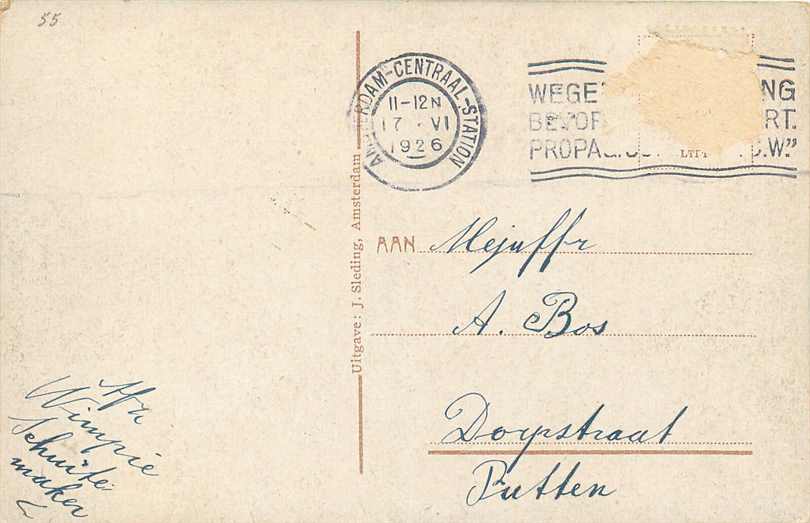 55
AMSTERDAM-CENTRAAL-STATION
11-12N
17 · VI
1926
WEGE NG
BEVOR RT.
PROPA C.W."
Uitgave: J. Sleding, Amsterdam
AAN Mejuffr
A. Bos
Dorpstraat
Putten
Afz
Wimpie
Schuite
maker